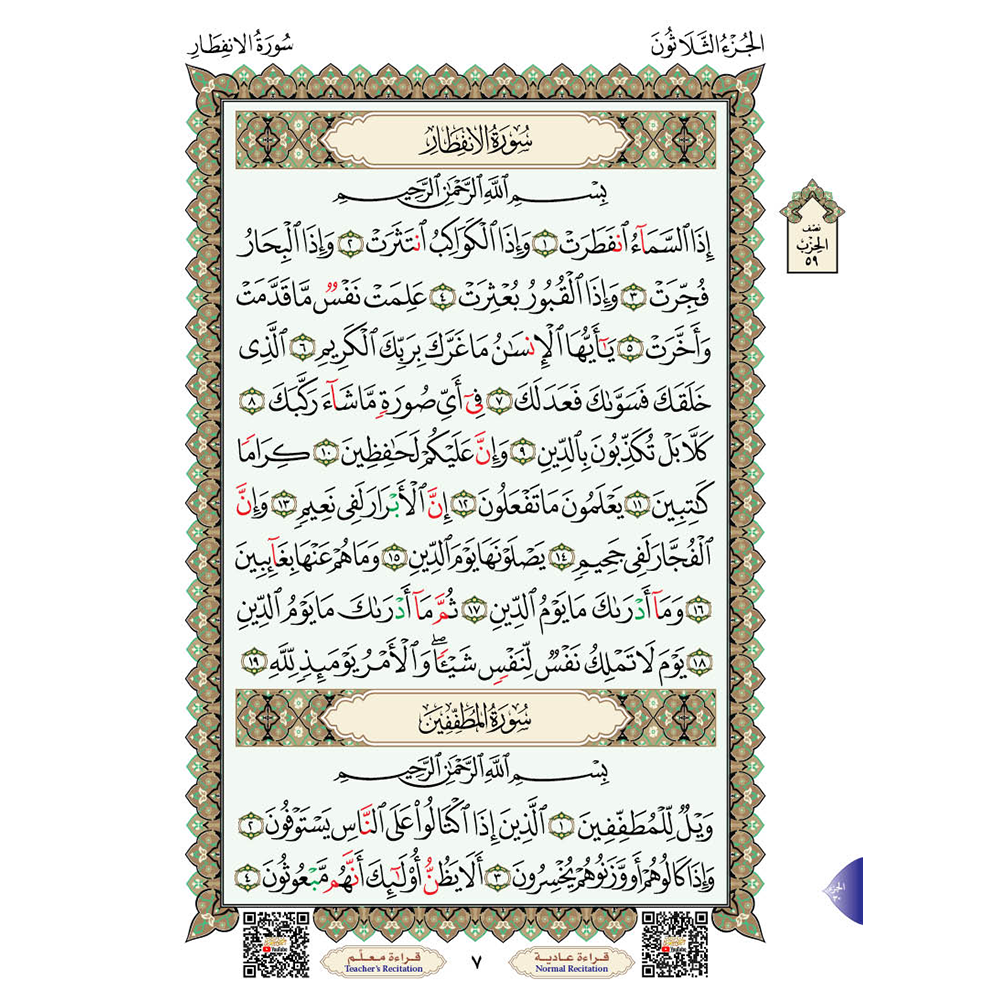 الجُزْءُ الثَّلَاثُونَ
سُورَةُ الانفِطَارِ
سُورَةُ الانفِطَارِ
بِسْمِ ٱللَّهِ ٱلرَّحْمَٰنِ ٱلرَّحِيمِ
إِذَا ٱلسَّمَآءُ ٱنفَطَرَتْ ١ وَإِذَا ٱلْكَوَاكِبُ ٱنتَثَرَتْ ٢ وَإِذَا ٱلْبِحَارُ
فُجِّرَتْ ٣ وَإِذَا ٱلْقُبُورُ بُعْثِرَتْ ٤ عَلِمَتْ نَفْسٌ مَّا قَدَّمَتْ
وَأَخَّرَتْ ٥ يَٰٓأَيُّهَا ٱلْإِنسَٰنُ مَا غَرَّكَ بِرَبِّكَ ٱلْكَرِيمِ ٦ ٱلَّذِى
خَلَقَكَ فَسَوَّىٰكَ فَعَدَلَكَ ٧ فِىٓ أَىِّ صُورَةٍ مَّا شَآءَ رَكَّبَكَ ٨
كَلَّا بَلْ تُكَذِّبُونَ بِٱلدِّينِ ٩ وَإِنَّ عَلَيْكُمْ لَحَٰفِظِينَ ١٠ كِرَامًا
كَٰتِبِينَ ١١ يَعْلَمُونَ مَا تَفْعَلُونَ ١٢ إِنَّ ٱلْأَبْرَارَ لَفِى نَعِيمٍ ١٣ وَإِنَّ
ٱلْفُجَّارَ لَفِى جَحِيمٍ ١٤ يَصْلَوْنَهَا يَوْمَ ٱلدِّينِ ١٥ وَمَا هُمْ عَنْهَا بِغَآئِبِينَ
١٦ وَمَآ أَدْرَىٰكَ مَا يَوْمُ ٱلدِّينِ ١٧ ثُمَّ مَآ أَدْرَىٰكَ مَا يَوْمُ ٱلدِّينِ
١٨ يَوْمَ لَا تَمْلِكُ نَفْسٌ لِّنَفْسٍ شَيْـًٔا ۖ وَٱلْأَمْرُ يَوْمَئِذٍ لِّلَّهِ ١٩
سُورَةُ المُطَفِّفِينَ
بِسْمِ ٱللَّهِ ٱلرَّحْمَٰنِ ٱلرَّحِيمِ
وَيْلٌ لِّلْمُطَفِّفِينَ ١ ٱلَّذِينَ إِذَا ٱكْتَالُوا۟ عَلَى ٱلنَّاسِ يَسْتَوْفُونَ ٢
وَإِذَا كَالُوهُمْ أَو وَّزَنُوهُمْ يُخْسِرُونَ ٣ أَلَا يَظُنُّ أُو۟لَٰٓئِكَ أَنَّهُم مَّبْعُوثُونَ ٤
نصف
الحِزْبُ
٥٩
قراءة عادية
Normal Recitation
٧
قراءة معلّم
Teacher's Recitation
YouTube
YouTube